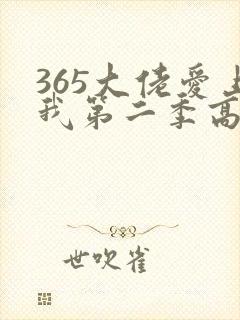 365大佬爱上
我第二季高
世吹雀